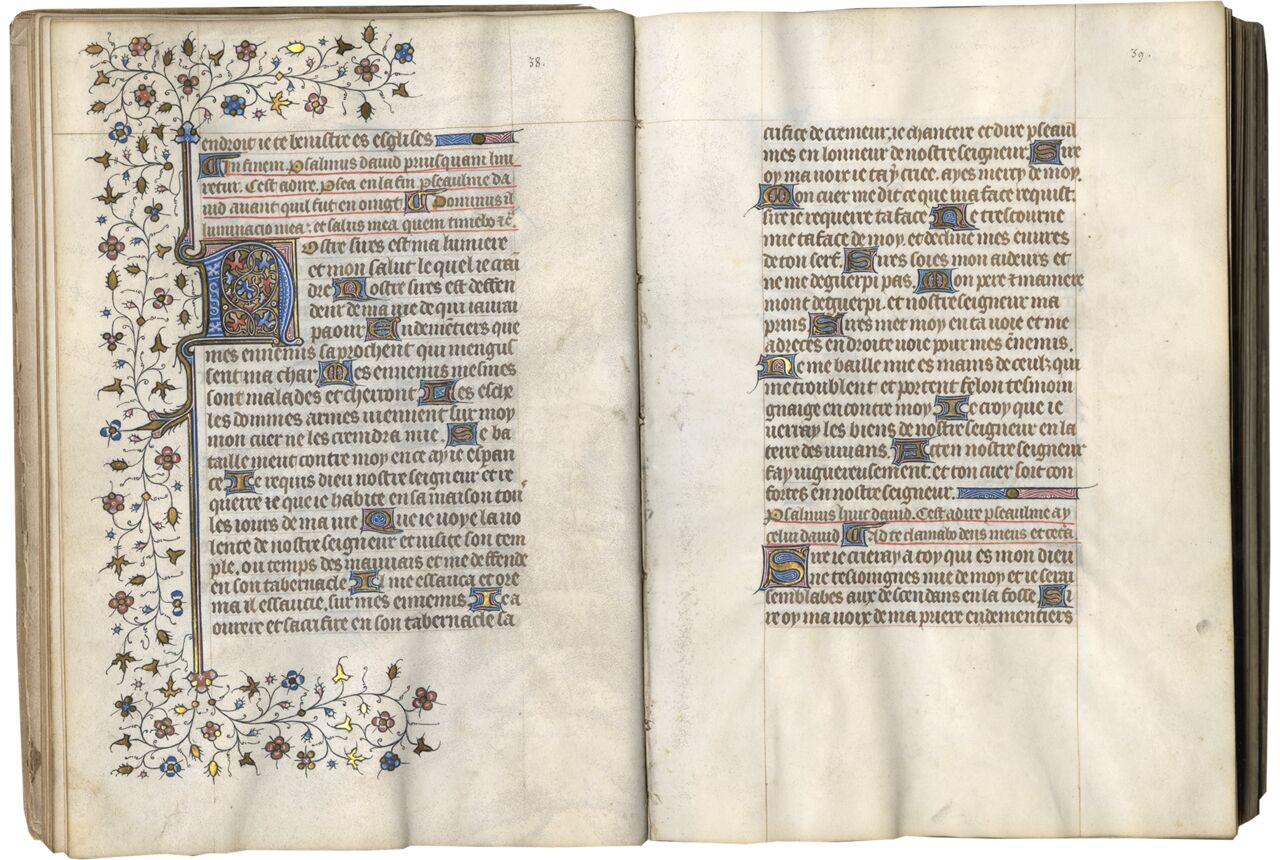 38.
endroit ie te beneistre es esglises
In finem. Psalmus david priusquam lini
retur. Cest adire. psea en la fin. pseaulme da
uid auant quil fut en oingt Dominus il
luminacio mea: et salus mea quem timebo &c̃
Nostre sires est ma lumiere
et mon salut le quel ie crai
dre Nostre sires est deffen
deur de ma uie de qui iaurai
paour En dementiers que
mes ennemis saprochent qui mengus
sent ma char Mes ennemis mesmes
sont malades et cheiront Ses esche
les dommes armes uiennent sur moy
mon cuer ne les creindra mie. Se ba
taille uient contre moy en ce ay ie espan
ce Ie requis dieu nostre seigneur et re
querre ie que ie habite en sa maison tou
les iours de ma uie Que ie uoye la uo
lente de nostre seigneur et uisite son tem
ple. ou temps des mauuais et me deffende
en son tabernacle Il me essauca et ore
ma il essaucie, sur mes ennemis Ie a
ourere et sacrifire en son tabernacle sa
39.
crifice de cremeur. ie chantere et dire pseaul
mes en lonneur de nostre seigneur. Sire
oy ma uoix ie tay criee. ayes mercy de moy.
Mon cuer me dit ce que ma face requist.
sire ie requerre ta face Ne trestourne
mie ta face de moy. et decline mes euures
de ton serf. Sires soies mon aideurs et
ne me deguerpi pas. Mon pere & ma mere
mont deguerpi. et nostre seigneur ma
prins Sires met moy en ta uoie et me
adreces en droite uoie pour mes ẽnemis.
Ne me baille mie es mains de ceulz qui
me troublent et portent felon tesmoin
gnaige encontre moy Ie croy que ie
uerray les biens de nostre seigneur en la
terre des uiuans. Aten nostre seigneur
fay uiguereusement et ton cuer soit con
fortes en nostre seigneur.
Psalmus huic david. Cest adire pseaulme ay
celui david Ad te clamabo deus meus et cetã
Sire ie crieray a toy qui es mon dieu
ne tesloingnes mie de moy et ie serai
semblabes aux descendans en la fosse Si
re oy ma uoix de ma priere endementiers